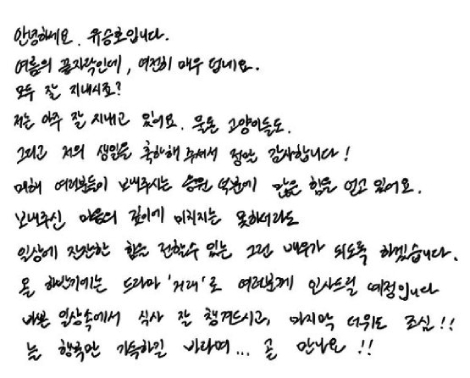 안녕하세요. 유승호입니다.
여름의 끝자락인데, 여전히 매우 덥네요.
모두 잘 지내시죠?
저는 아주 잘 지내고 있어요. 물론 고양이들도.
그리고 저의 생일을 축하해 주셔서 정말 감사합니다!
매해 여러분들이 보내주시는 응원 덕분에 많은 힘을 얻고 있어요.
보내주신 마음의 깊이에 미치지는 못하더라도
일상에 잔잔한 힘을 전할수 있는 그런 배우가 되도록 하겠습니다.
올 하반기에는 드라마 '거래'로 여러분께 인사드릴 예정입니다
바쁜 일상속에서 식사 잘 챙겨드시고, 마지막 더위도 조심!!
늘 행복만 가득하길 바라며... 곧 만나요 !!